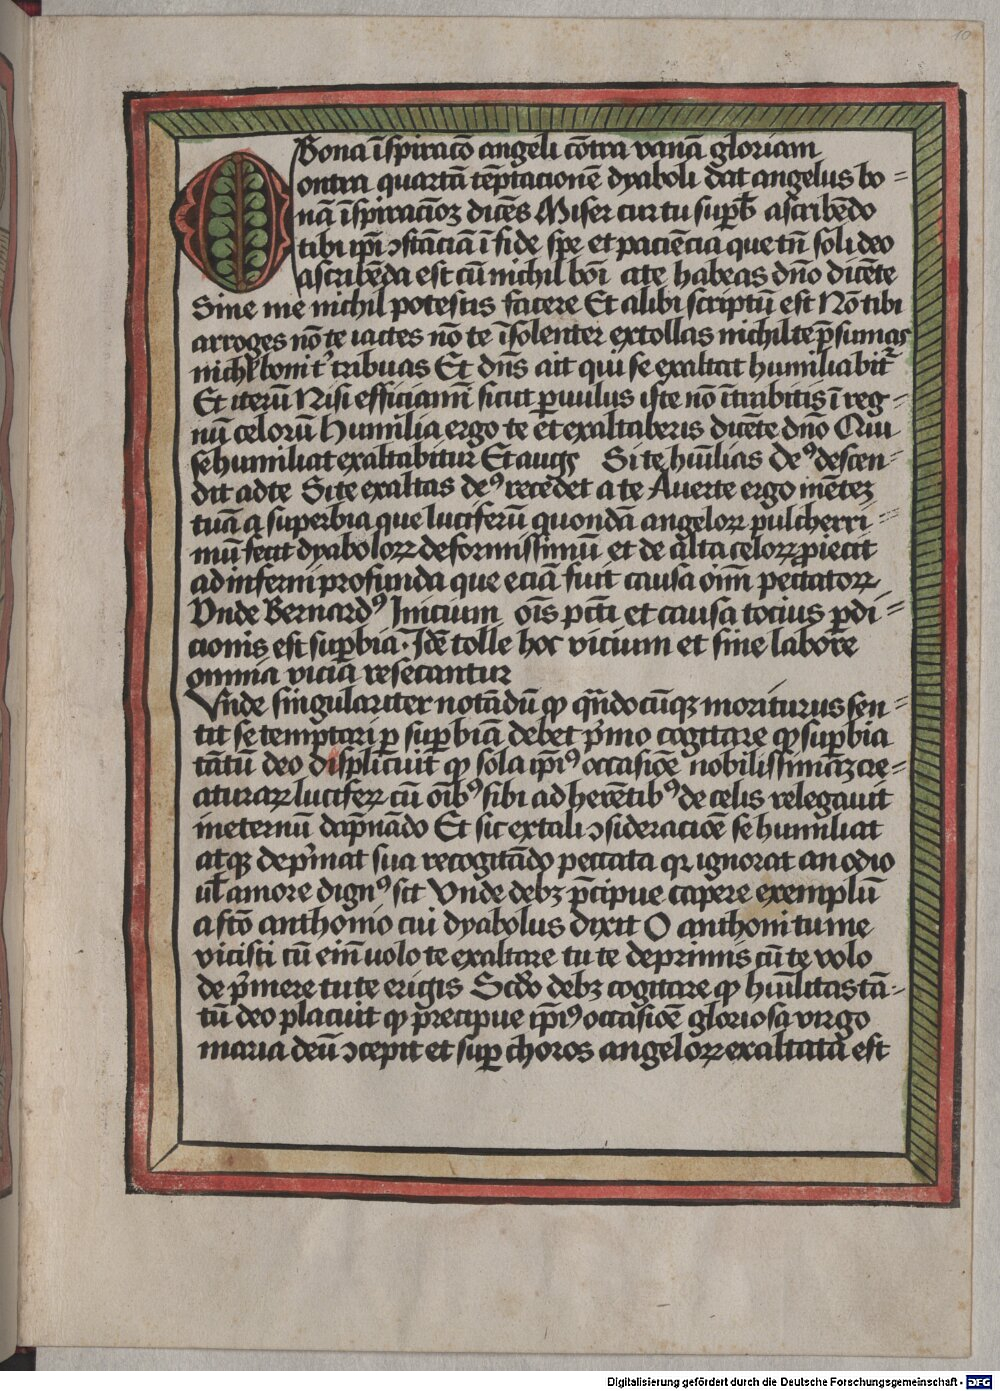 10
Bona īspiracō angeli cōtra vanā gloriam
Contra quartā tēptacionē dyaboli dat angelus bo=
nā īspiracioꝫ dicēs Miser cur tu supb̄ ascribēdo
tibi ip̄i ↄstāciā ī fide spe et paciēcia que tn̄ soli deo
ascribēda est cū nichil boī a te habeas dn̄o dicēte
Sine me nichil potestis facere Et alibi scriptū est Nō tibi
arroges nō te iactes nō te īsolenter extollas nichil te p̄sumas
nichil boni tˀ tribuas Et dn̄s ait qui se exaltat humiliabitˀ
Et iterū Nisi efficiamī sicut ꝑuulus iste nō ītrabitis ī reg=
nū celorū Humilia ergo te et exaltaberis dicēte dn̄o Qui
se humiliat exaltabitur Et augꝰ Si te hūilias deꝰ descen=
dit ad te Si te exaltas deꝰ recedet a te Auerte ergo mēteꝫ
tuā a superbia que luciferū quondā angeloꝝ pulcherri=
mū fecit dyaboloꝝ deformissimū et de alta celoꝝ ꝓiecit
ad inferni profunda que eciā fuit causa oīm peccatoꝝ
Vnde Bernardꝰ Inicium oīs pccī et causa tocius ꝑdi=
cionis est suꝑbia. Idē tolle hoc vicium et sine labore
omnia vicia resecantur
Vnde singulariter notādū ꝙ qn̄docūqꝫ moriturus sen=
tit se temptari ꝑ suꝑbiā debet pˀmo cogitare ꝙ suꝑbia
tātū deo displicuit ꝙ sola ip̄iꝰ occasiōe nobilissimāꝫ cre=
aturaꝝ luciferꝝ cū oībꝰ sibi adherētibꝰ de celis relegauit
in eternū dāpnādo Et sic ex tali ↄsideraciōe se humiliat
atqꝫ depˀmat sua recogitādo peccata qꝛ ignorat an odio
ul̄ amore dignꝰ sit Vnde debꝫ p̄cipue capere exemplū
a sc̄o anthonio cui dyabolus dixit O anthoni tu me
vicisti cū eīm uolo te exaltare tu te deprimis cū te volo
depˀmere tu te erigis Scd̄o debꝫ cogitare ꝙ hūilitas tā=
tū deo placuit ꝙ precipue ip̄iꝰ occasiōe gloriosa virgo
maria deū ↄcepit et suꝑ choros angeloꝝ exaltata est
Digitalisierung gefördert durch die Deutsche Forschungsgemeinschaft - DFG